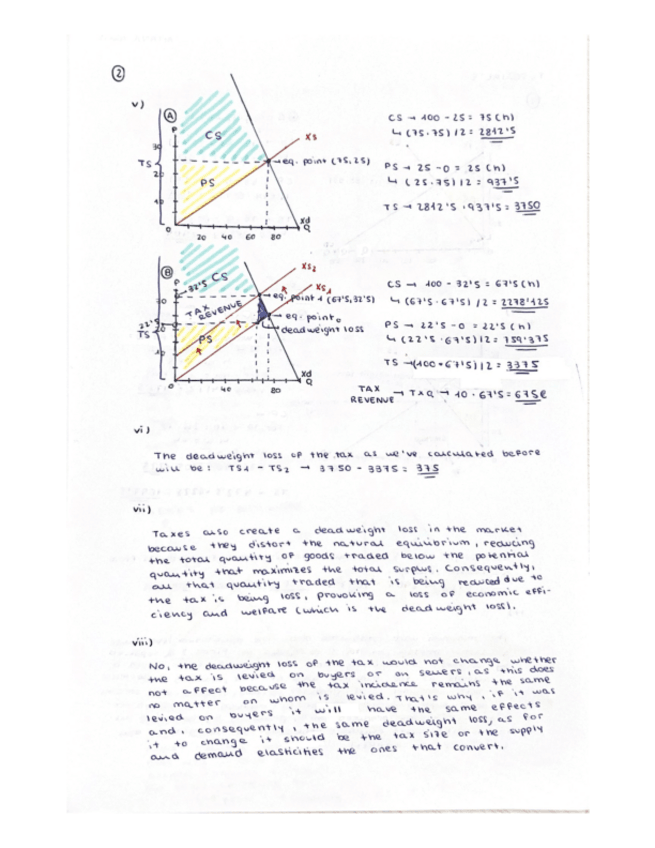 2
v)
A
P
CS
Xs
30
TS
20
eq. point (75,25)
PS
10
0
20 40 60 80
Xd
Q
CS → 100 - 25 = 75 (h)
↳ (75·75)/2 = 2812'5
PS → 25 - 0 = 25 (h)
↳ (25·75)/2 = 937'5
TS → 2812'5 · 937'5 = 3750
B
P
CS
Xs2
Xs1
32'5
eq. point 1 (67'5, 32'5)
TAX
REVENUE
eq. point0
22'5
TS
20
deadweight loss
PS
10
0
40
80
Xd
Q
CS → 100 - 32'5 = 67'5 (h)
↳ (67'5 · 67'5) /2 = 2278'125
PS → 22'5 - 0 = 22'5 (h)
↳ (22'5 · 67'5)/2 = 759'375
TS →(100 · 67'5)/2 = 3375
TAX REVENUE → T×Q → 10 · 67'5 = 675€
vi)
The deadweight loss of the tax as we've calculated before
will be: TS1 - TS2 → 3750 - 3375 = 375
vii)
Taxes also create a deadweight loss in the market
because they distort the natural equilibrium, reducing
the total quantity of goods traded below the potential
quantity that maximizes the total surplus. Consequently,
all that quantity traded that is being reduced due to
the tax is being loss, provoking a loss of economic effi-
ciency and welfare (which is the deadweight loss).
viii)
No, the deadweight loss of the tax would not change whether
the tax is levied on buyers or on sellers, as this does
not affect because the tax incidence remains the same
no matter on whom is levied. That's why, if it was
levied on buyers it will have the same effects
and, consequently, the same deadweight loss, as for
it to change it should be the tax size or the supply
and demand elasticities the ones that convert.